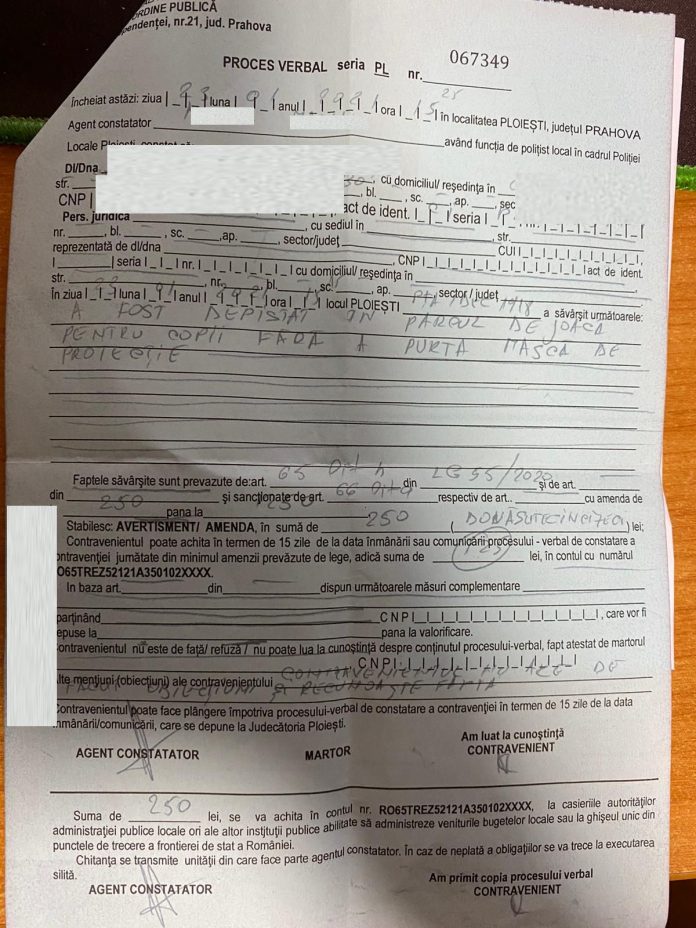 ORDINE PUBLICĂ
pendenței, nr.21, jud. Prahova
PROCES VERBAL seria PL nr. 067349
încheiat astăzi: ziua luna anul ora în localitatea PLOIEȘTI, județul PRAHOVA
Agent constatator având funcția de polițist local în cadrul Poliției
Locale
Dl/Dna
str. cu domiciliul/ reședința în
bl. , sc. , ap. , sec
CNP act de ident. seria
Pers. juridica , cu sediul în , str.
nr. , bl. , sc. ,ap. , sector/județ CUI
reprezentată de dl/dna , CNP act de ident.
seria nr. cu domiciliul/ reședința în
str. , nr. bl. , sc. , ap. , sector / județ
În ziua luna anul ora locul PLOIEȘTI a săvârșit următoarele:
A FOST DEPISTAT IN PARCUL DE JOACA
PENTRU COPII FARA A PURTA MASCA DE
PROTECȚIE
Faptele săvârșite sunt prevazute de:art. 65 lit h din LG 55/2020 și de art.
din și sancționate de art. 66 lit a respectiv de art.. cu amenda de
250 pana la
Stabilesc: AVERTISMENT/ AMENDA, în sumă de 250 ( DOUASUTECINCIZECI ) lei;
Contravenientul poate achita în termen de 15 zile de la data înmânării sau comunicării procesului - verbal de constatare a
ontravenției jumătate din minimul amenzii prevăzute de lege, adică suma de 125 lei, în contul cu numărul
RO65TREZ52121A350102XXXX.
In baza art. din dispun următoarele măsuri complementare
parținând CNP , care vor fi
epuse la pana la valorificare.
ontravenientul nu este de față/ refuză / nu poate lua la cunoștință despre conținutul procesului-verbal, fapt atestat de martorul
, CNP
Alte mențiuni (obiecțiuni) ale contravenientului CONTRAVENIENTUL NU ARE DE
FACUT OBIECȚIUNI ȘI RECUNOAȘTE FAPTA
Contravenientul poate face plângere împotriva procesului-verbal de constatare a contravenției în termen de 15 zile de la data
înmânării/comunicării, care se depune la Judecătoria Ploiești.
Am luat la cunoștință
AGENT CONSTATATOR MARTOR CONTRAVENIENT
Suma de 250 lei, se va achita în contul nr. RO65TREZ52121A350102XXXX, la casieriile autorităților
administrației publice locale ori ale altor instituții publice abilitate să administreze veniturile bugetelor locale sau la ghișeul unic din
punctele de trecere a frontierei de stat a României.
Chitanța se transmite unității din care face parte agentul constatator. În caz de neplată a obligațiilor se va trece la executarea
silită.
Am primit copia procesului verbal
AGENT CONSTATATOR CONTRAVENIENT